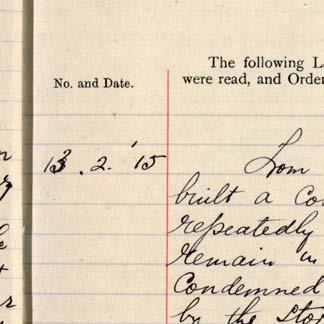 The following L
No. and Date.
were read, and Orde
13. 2. '15
From
built a co
repeatedly
remain in
condemned
by the sto